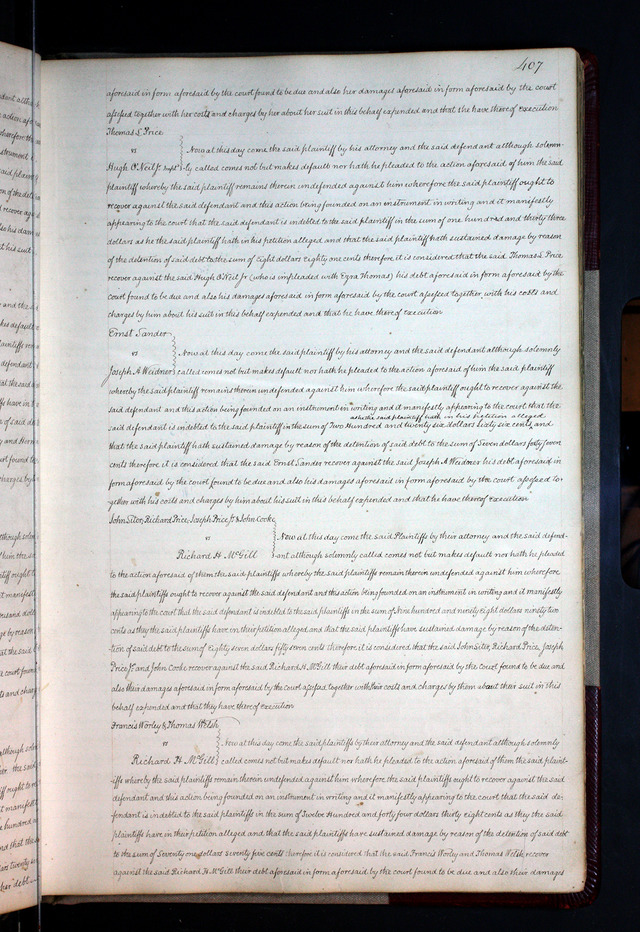 407
aforesaid in form aforesaid by the court found to be due and also her damages aforesaid in form aforesaid by the court
assessed together with her costs and charges by her about her suit in this behalf expended and that she have thereof execution
Thomas L Price
vs
Now at this day come the said plaintiff by his attorney and the said defendant although solemn-
Hugh O'Neil Jr -ly called comes not but makes default nor hath he pleaded to the action aforesaid of him the said
plaintiff whereby the said plaintiff remains therein undefended against him wherefore the said plaintiff ought to
recover against the said defendant and this action being founded on an instrument in writing and it manifestly
appearing to the court that the said defendant is indebted to the said plaintiff in the sum of one hundred and thirty three
dollars as he the said plaintiff hath in his petition alleged and that the said plaintiff hath sustained damage by reason
of the detention of said debt to the sum of Eight dollars Eighty one cents therefore it is considered that the said Thomas L Price
recover against the said Hugh O'Neil Jr (who is impleaded with Ezra Thomas) his debt aforesaid in form aforesaid by the
court found to be due and also his damages aforesaid in form aforesaid by the court assessed together with his costs and
charges by him about his suit in this behalf expended and that he have thereof execution
Ernst Sander
vs
Now at this day come the said plaintiff by his attorney and the said defendant although solemnly
Joseph A Weidner called comes not but makes default nor hath he pleaded to the action aforesaid of him the said plaintiff
whereby the said plaintiff remains therein undefended against him wherefore the said plaintiff ought to recover against the
said defendant and this action being founded on an instrument in writing and it manifestly appearing to the court that the
as he the said plaintiff hath in his petition alleged
said defendant is indebted to the said plaintiff in the sum of Two Hundred and twenty six dollars sixty six cents and
that the said plaintiff hath sustained damage by reason of the detention of said debt to the sum of Seven dollars forty seven
cents therefore it is considered that the said Ernst Sander recover against the said Joseph A Weidner his debt aforesaid in
form aforesaid by the court found to be due and also his damages aforesaid in form aforesaid by the court assessed to-
gether with his costs and charges by him about his suit in this behalf expended and that he have thereof execution
John Siter, Richard Price, Joseph Price Jr & John Cooke
vs
Now at this day come the said Plaintiffs by their attorney and the said defend-
Richard H McGill ant although solemnly called comes not but makes default nor hath he pleaded
to the action aforesaid of them the said plaintiffs whereby the said plaintiffs remain therein undefended against him wherefore
the said plaintiffs ought to recover against the said defendant and this action being founded on an instrument in writing and it manifestly
appearing to the court that the said defendant is indebted to the said plaintiffs in the sum of hundred and ninety eight dollars ninety two
cents as they the said plaintiffs have in their petition alleged and that the said plaintiffs have sustained damage by reason of the deten-
tion of said debt to the sum of Eighty seven dollars fifty seven cents therefore it is considered that the said John Siter, Richard Price, Joseph
Price Jr and John Cooke recover against the said Richard H. McGill their debt aforesaid in form aforesaid by the court found to be due and
also their damages aforesaid in form aforesaid by the court assessed together with their costs and charges by them about their suit in this
behalf expended and that they have thereof execution
Francis Worley & Thomas Welsh
vs
Now at this day come the said plaintiffs by their attorney and the said defendant although solemnly
Richard H McGill called comes not but makes default nor hath he pleaded to the action aforesaid of them the said plaint-
iffs whereby the said plaintiffs remain therein undefended against him wherefore the said plaintiffs ought to recover against the said
defendant and this action being founded on an instrument in writing and it manifestly appearing to the court that the said de-
fendant is indebted to the said plaintiffs in the sum of Twelve Hundred and forty four dollars thirty eight cents as they the said
plaintiffs have in their petition alleged and that the said plaintiffs have sustained damage by reason of the detention of said debt
to the sum of Seventy one dollars seventy five cents therefore it is considered that the said Francis Worley and Thomas Welsh recover
against the said Richard H McGill their debt aforesaid in form aforesaid by the court found to be due and also their damages